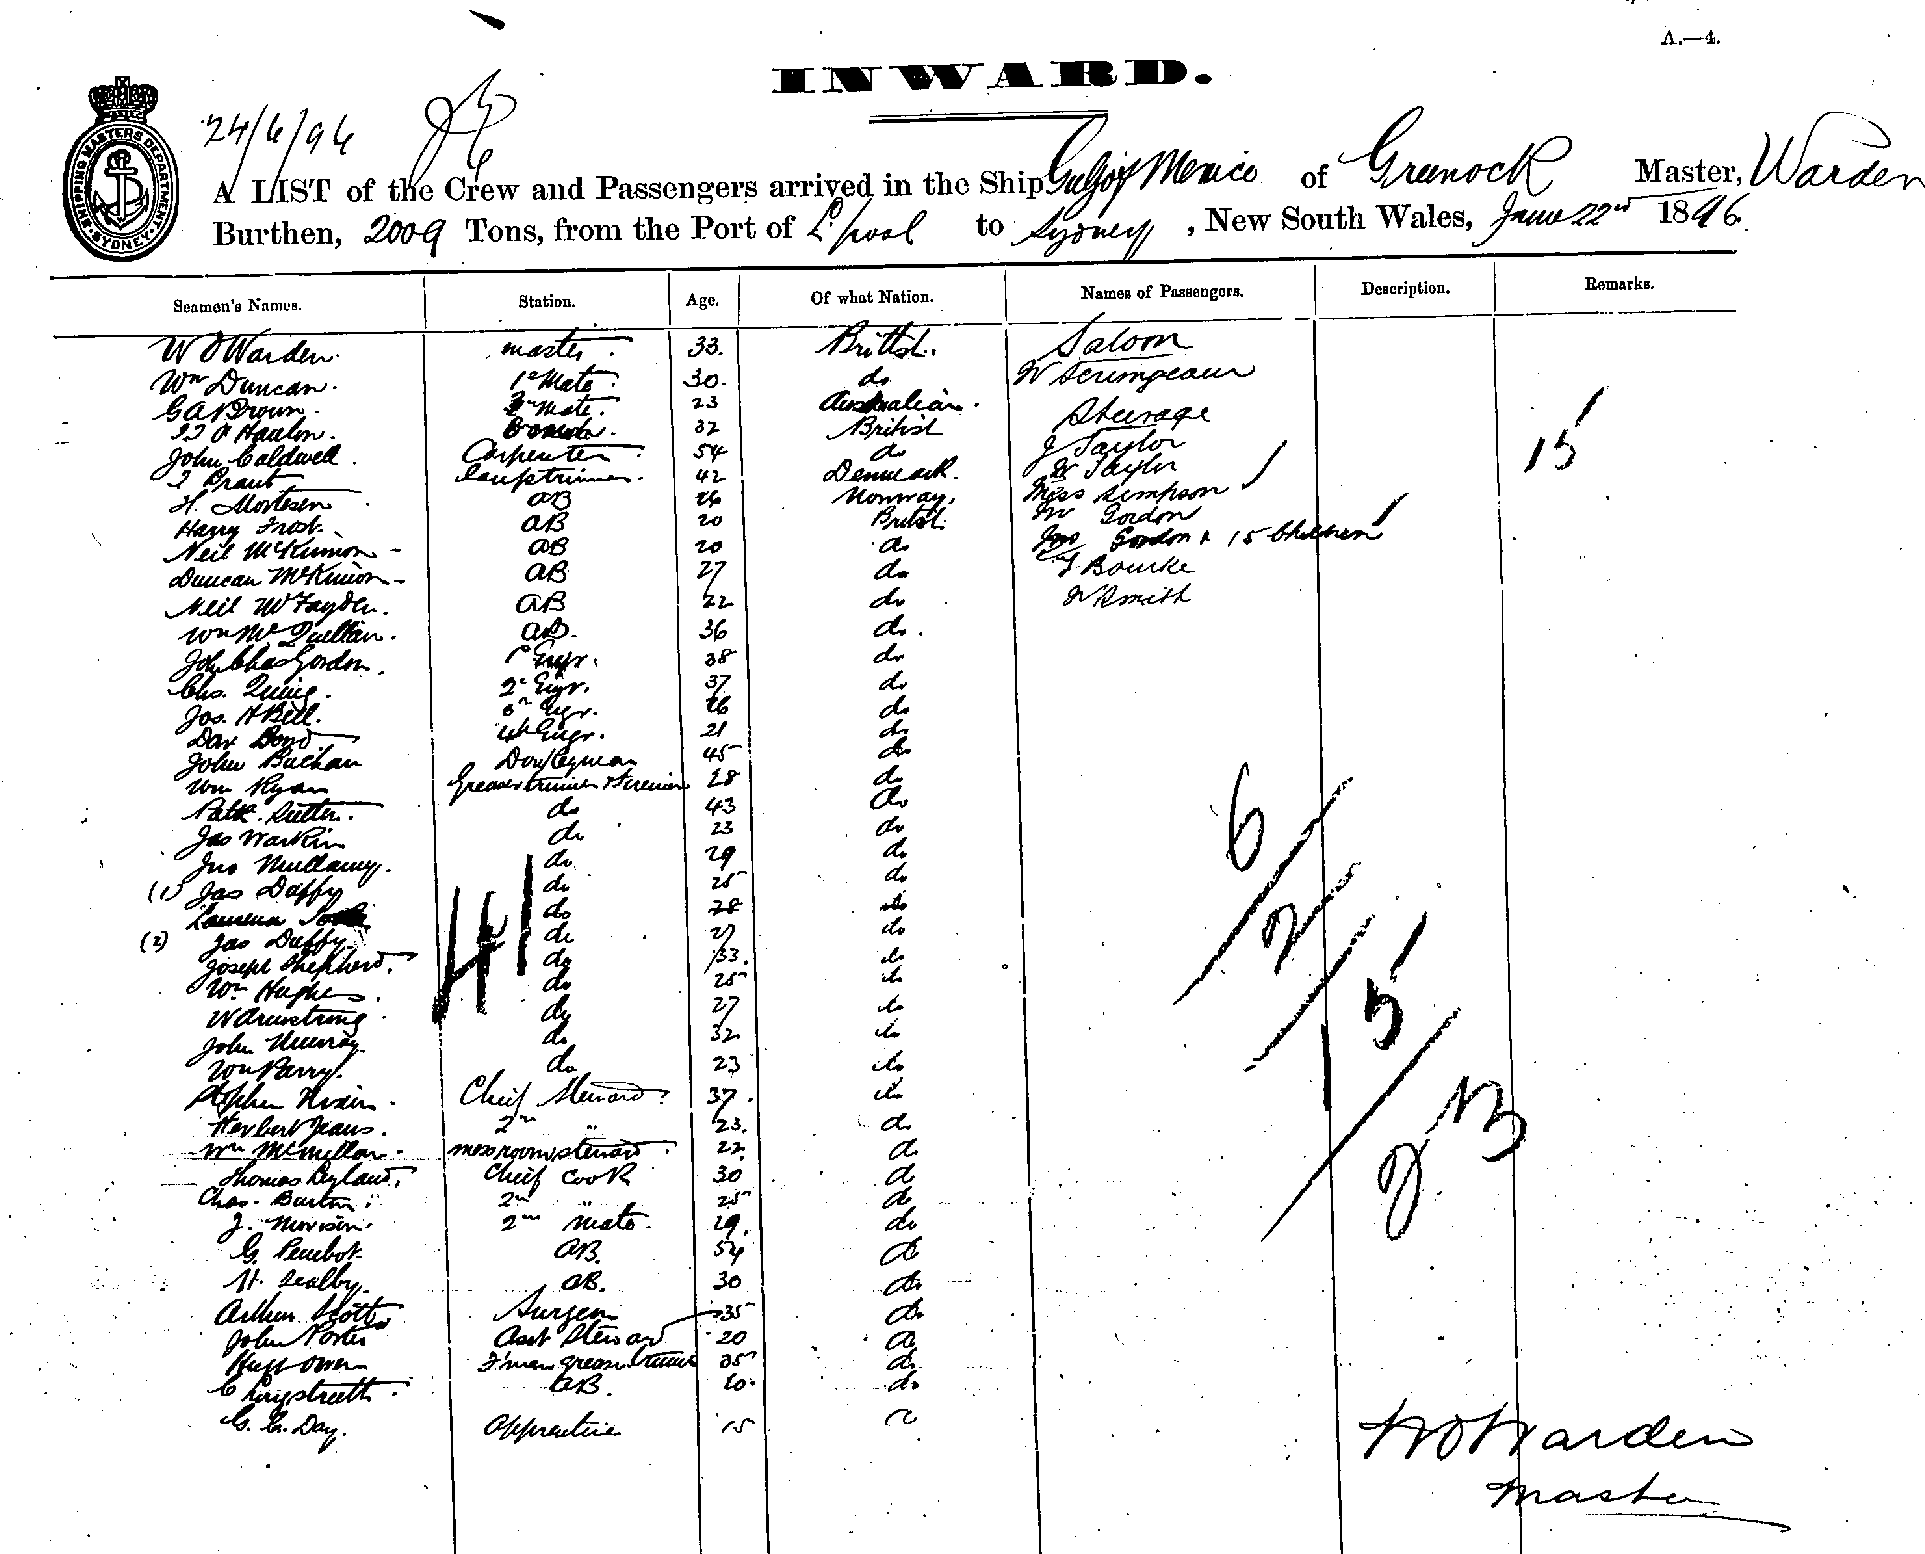 A.—4.
INWARD.
SHIPPING MASTERS DEPARTMENT SYDNEY
24/6/96
A LIST of the Crew and Passengers arrived in the Ship Gulf of Mexico of Greenock Master, Warden
Burthen, 2009 Tons, from the Port of L'pool to Sydney, New South Wales, June 22nd 1896.
Seamen's Names. Station. Age. Of what Nation. Names of Passengers. Description. Remarks.
W O Warden. master. 33. British. Saloon
Wm Duncan. 1st Mate. 30. do W Scrimgeour
G A Brown. mate. 23 Australian. Steerage
32 British J Taylor
John Caldwell. Carpenter 54 do W Taylor
Lamptrimmer. 42 Denmark. Miss Simpson
H. Mortesen AB 26 Norway. Mr Gordon
Harry Frost. AB 20 British. Gordon & 15 Children
Neil McKinnon AB 20 do Bourke
Duncan McKinnon AB 27 do Smith
Neil McFayden. AB 22 do
Wm McQuillan. AB. 36 do.
Joh Chas Gordon. 1st Engr. 38 do
Chs. 2d Engr. 37 do
Jos. H Bell. 3rd Engr. 26 do
Dav Bond 4th Engr. 21 do
John Buchan Donkeyman 45 do
Wm Ryan Greaser trimmer & fireman 28 do
Patk. do 43 do
Jas do 23 do
Jno Mullaney. do 29 do
(1) Jas Duffy do 25 do
do 28 do
(2) Jas Duffy do 27 do
Joseph Shepherd. do 33. do
Wm Hughes. do 25 do
W Armstrong do 27 do
John Murray do 32 do
Wm Parry. do 23 do
Stephen Nixon. Chief Steward. 37. do
Herbert Jeans. 2nd " 23. do
Wm McMillan. messroom steward. 22. do
Thomas Ryland. Chief Cook 30 do
Chas. Burton. 2nd " 25 do
J. Morrison. 2nd mate. 29. do
G. AB. 54 do
H. Sealby. AB. 30 do
Arthur Surgeon 35 do
John Porter Asst Steward 20 do
Hugh Owen F'man greaser trimmer 35 do
C AB. 20. do
G. C. Day. apprentice 15
15
41
6
2
15
23
W O Warden
Master